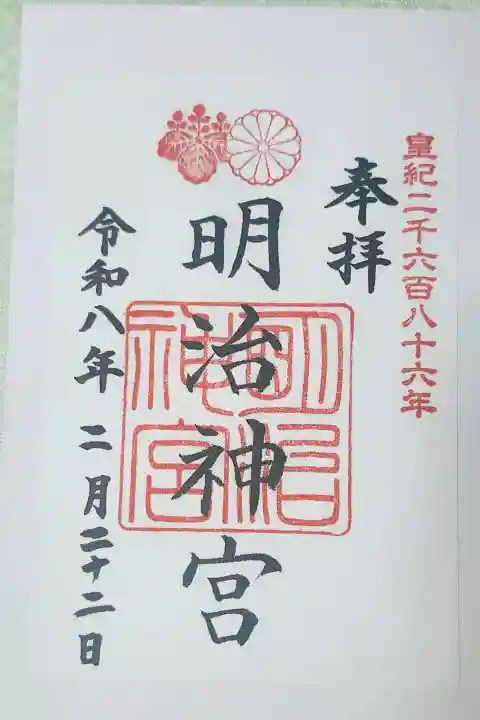 皇紀二千六百八十六年
奉拝
明治神宮
明治神宮
令和八年 二月二十二日